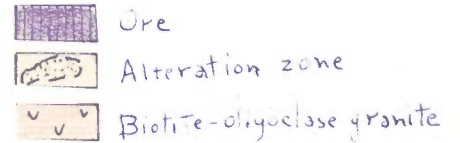 Ore
Alteration zone
Biotite-oligoclase granite